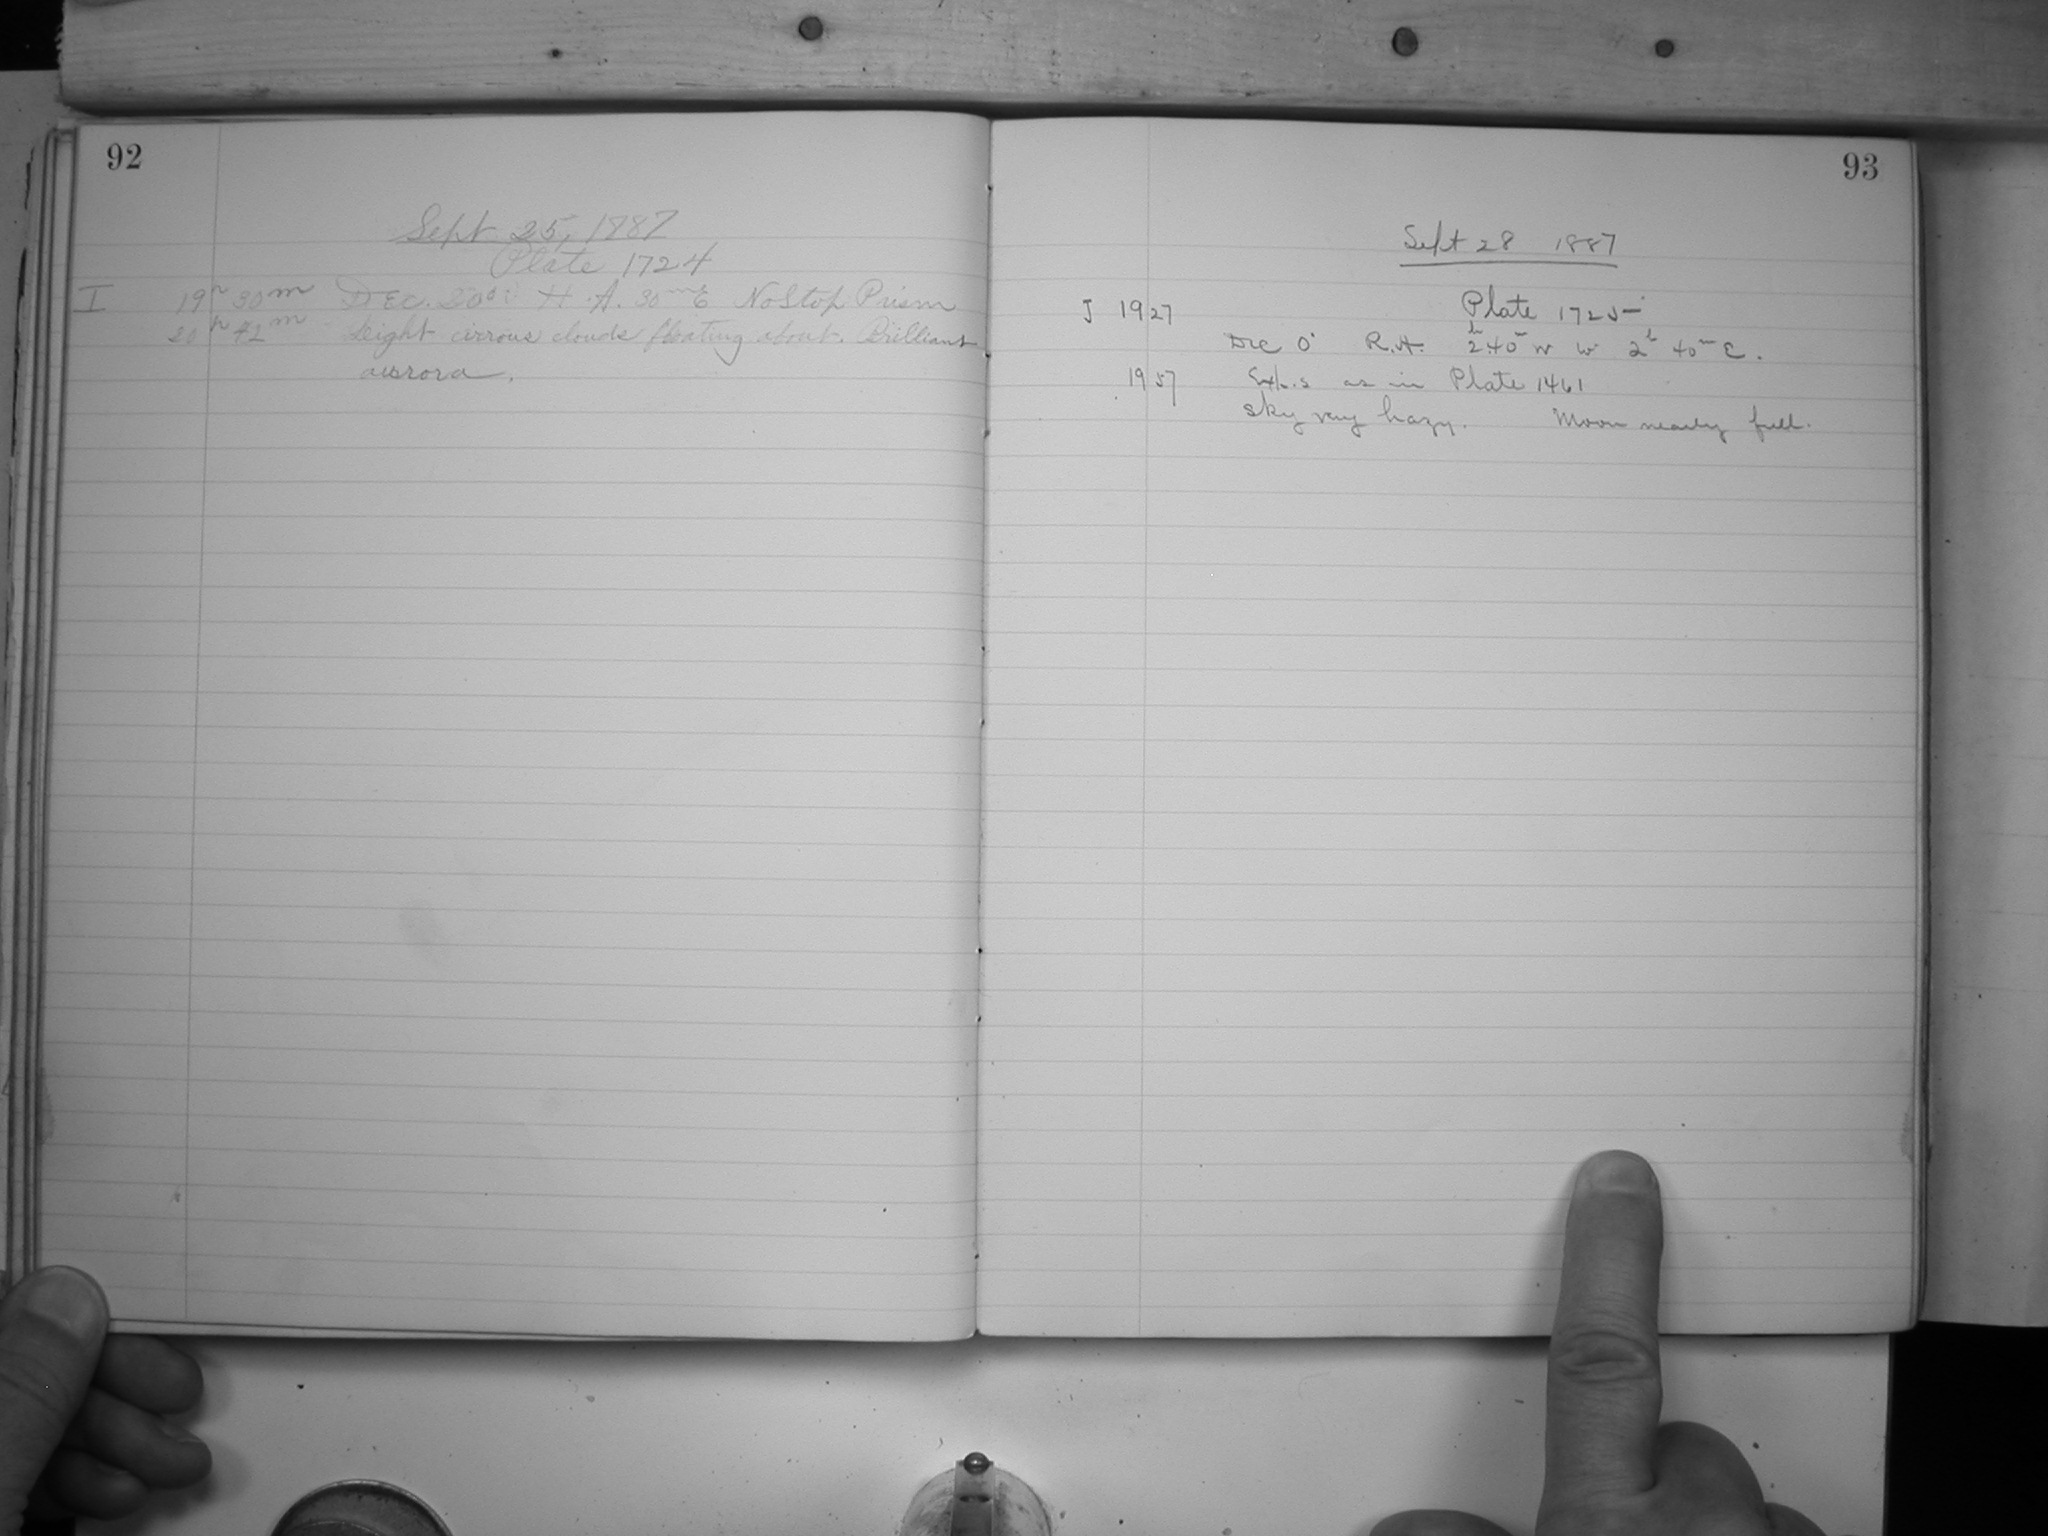 92
Sept 25, 1887
Plate 1724
I 19h 30m Dec. H.A. 30m E No Stop Prism
20h 42m Light cirrous clouds floating about. Brilliant
aurora.
93
Sept 28 1887
J 19 27 Plate 1725
Dec 0° R.A. 2h 40m W 2h 40m E.
19 57 Exp.s as in Plate 1461
Sky very hazy. Moon nearly full.